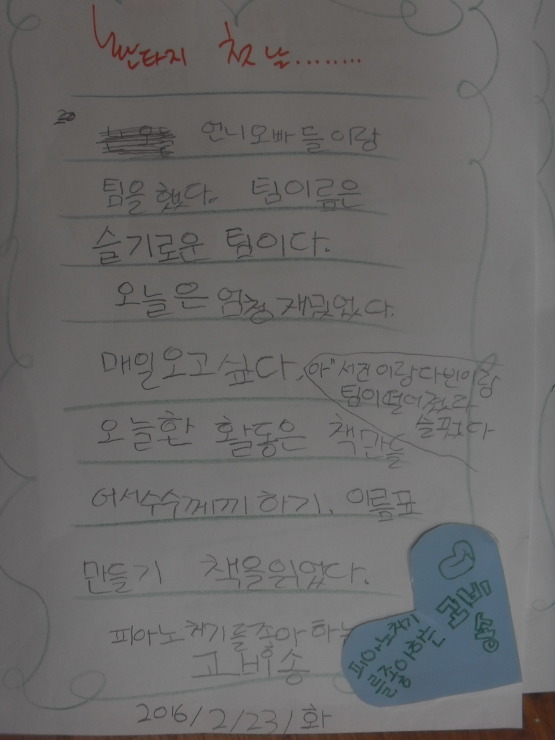 판타지 첫날........
언니오빠들이랑
팀을 했다. 팀이름은
슬기로운 팀이다.
오늘은 엄청 재밌었다.
매일오고싶다,
아" 서진이랑다빈이랑
팀이떨어졌다
슬펐다
오늘한 활동은 책만들
어서수수께끼하기, 이름표
만들기 책을읽었다.
피아노치기를좋아하는
고비송
2016/2/23/화
피아노치기
를좋아하는
고비송